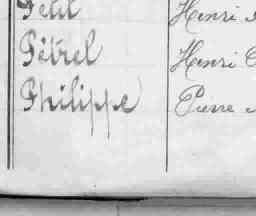 Petit Henri
Pétrel Henri
Philippe Pierre